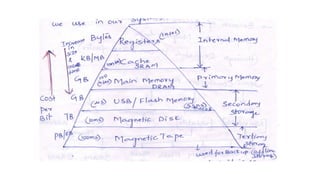 we use in our
Increase in size & access time
Bytes Registers (10ns) Internal Memory
KB/MB Cache SRAM
GB Main Memory DRAM Primary Memory
GB (ms) USB / Flash Memory Secondary Storage
TB (10ms) Magnetic Disc
PB/EB (500ms) Magnetic Tape Tertiary
Cost Per Bit
used for Back up (offline storage)